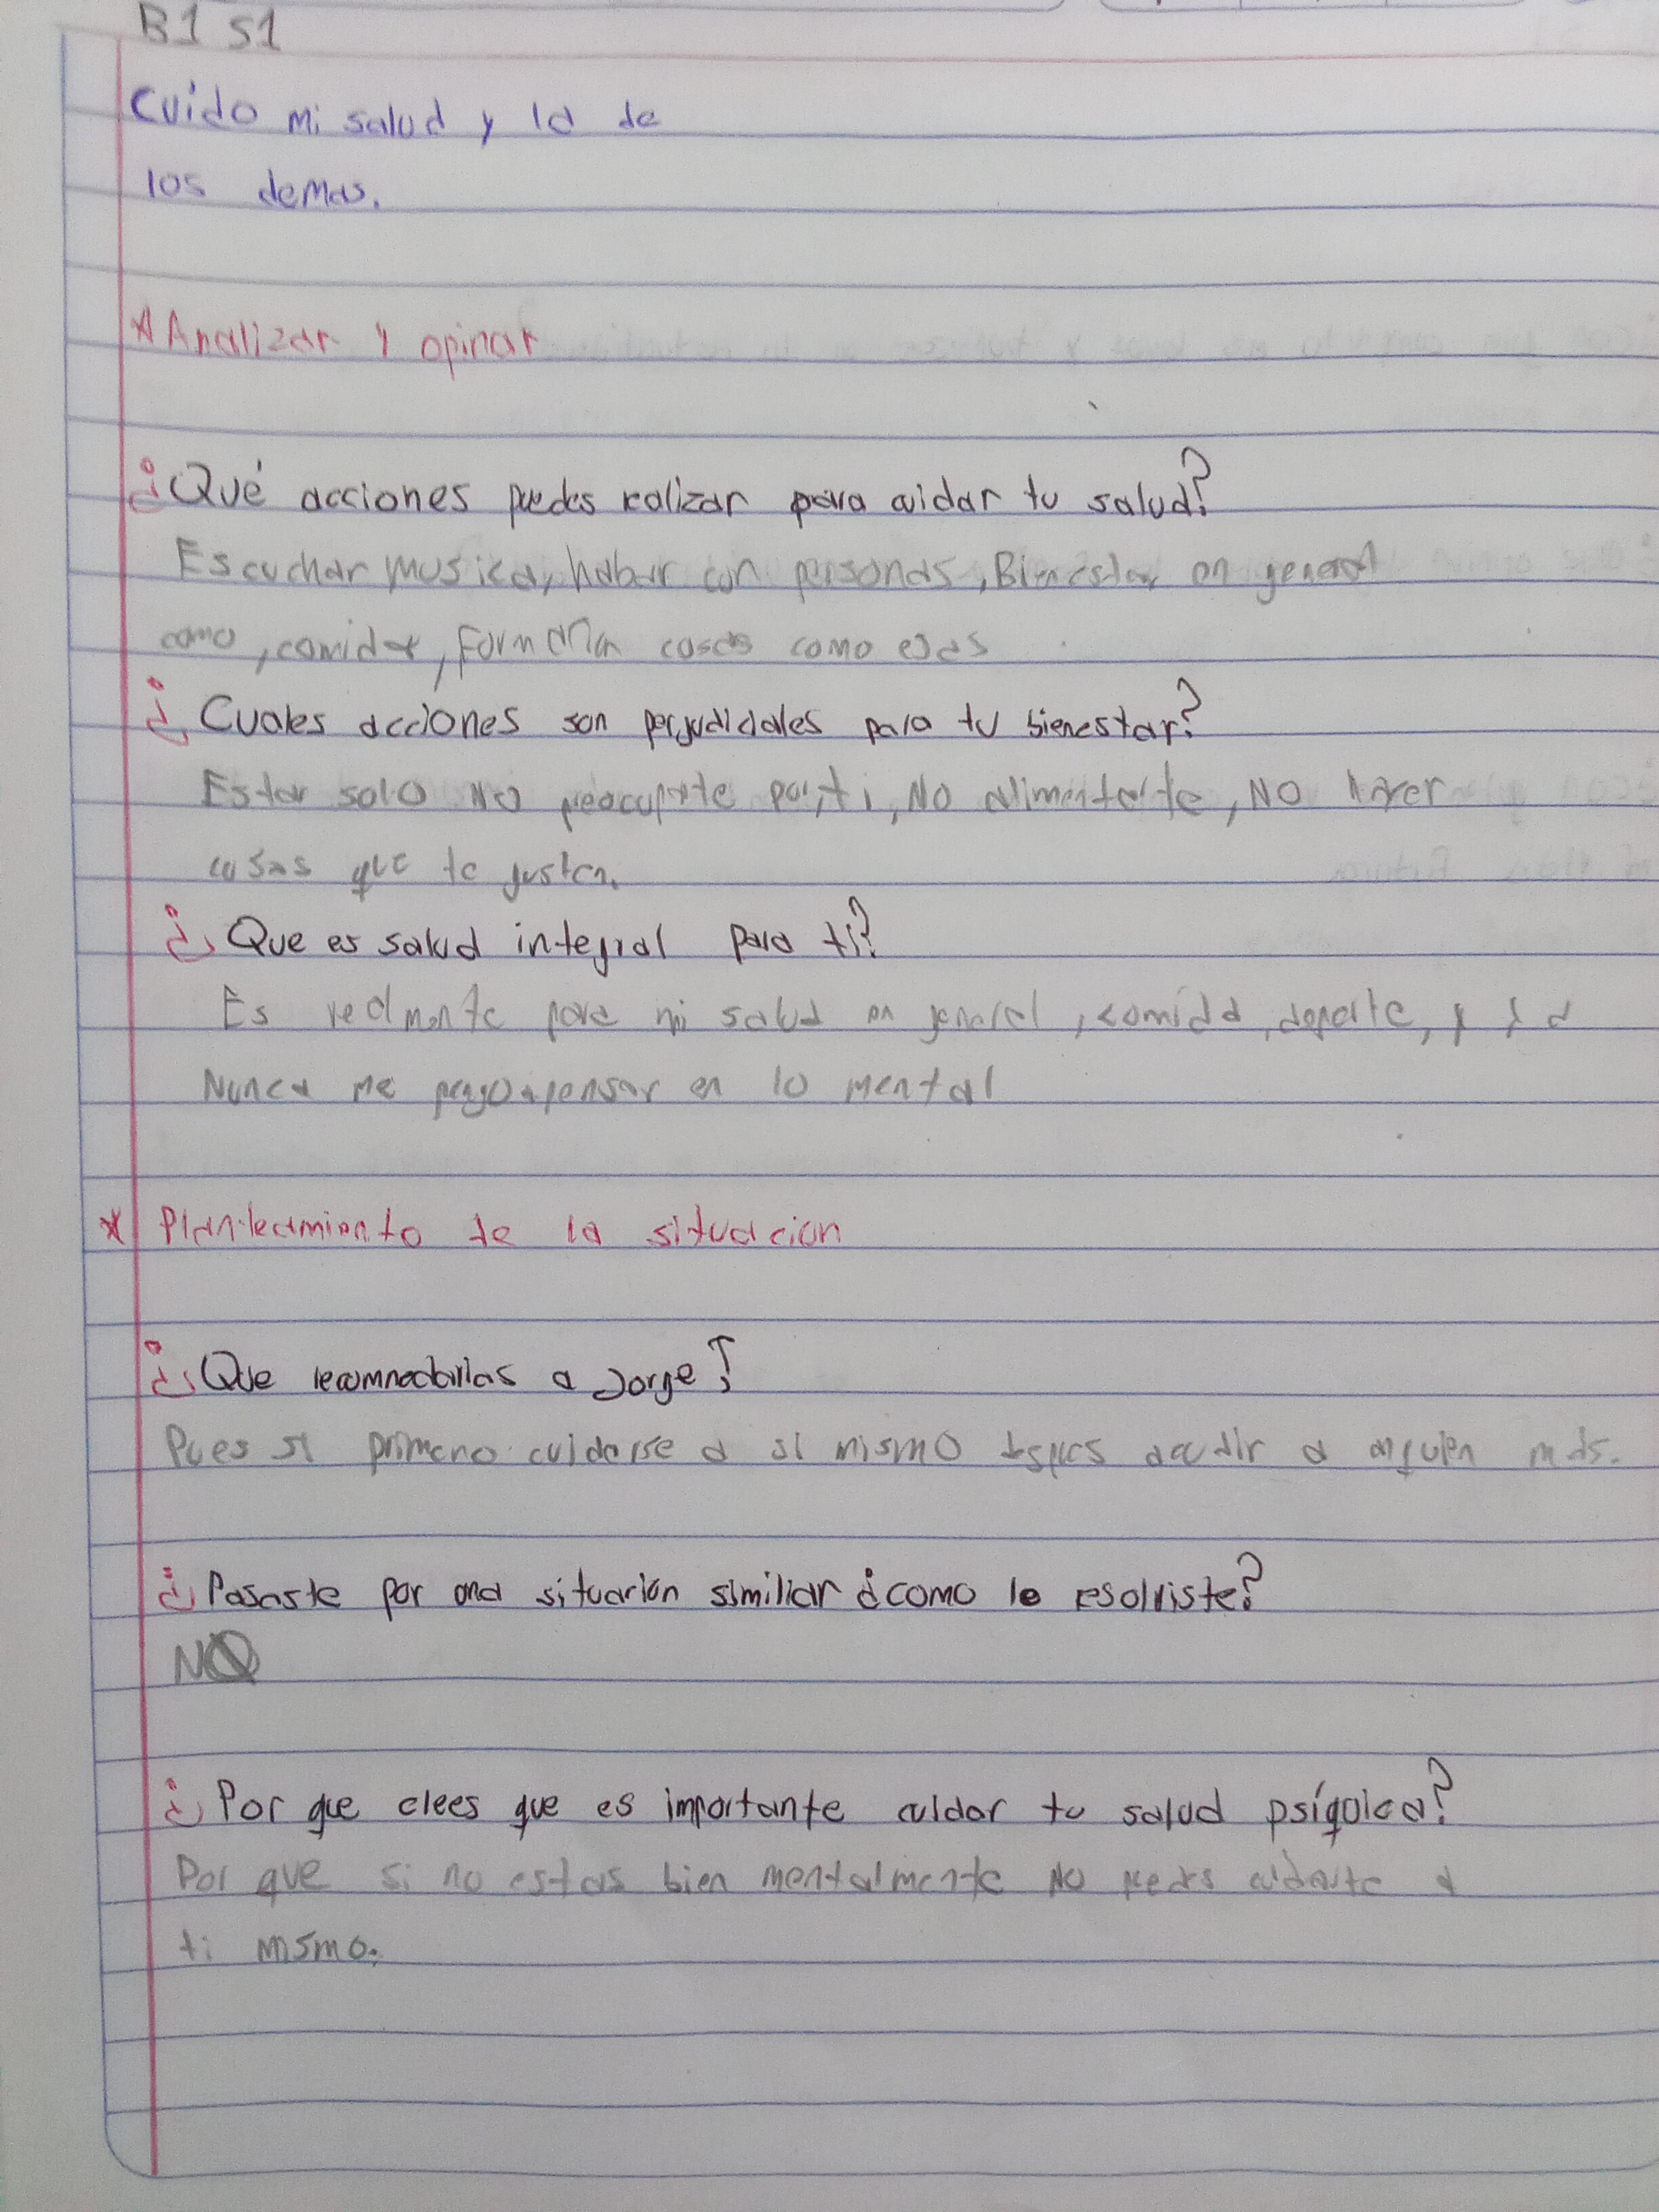 B1 S1
Cuido mi salud y la de
los demas.
*Analizar y opinar
¿Qué acciones puedes ralizar para cuidar tu salud?
Escuchar musica, hablar con personas, Bienestar en general
como, comida, Familia cosas como esas
¿Cuales acciones son perjudiciales para tu bienestar?
Estar solo No preocuparte por ti, No alimentarte, NO hacer
cosas que te gusten.
¿Que es salud integral para ti?
Es realmente para mi salud en general, comida, deporte, y
Nunca me pongo a pensar en lo mental
* Planteamiento de la situacion
¿Que a Jorge?
Pues si primero cuidarse a si mismo acudir a alguien más.
¿Pasaste por una situación similiar ¿como lo resolviste?
NO
¿Por que crees que es importante cuidar tu salud psíquica?
Por que si no estas bien mentalmente No puedes cuidarte a
ti mismo.